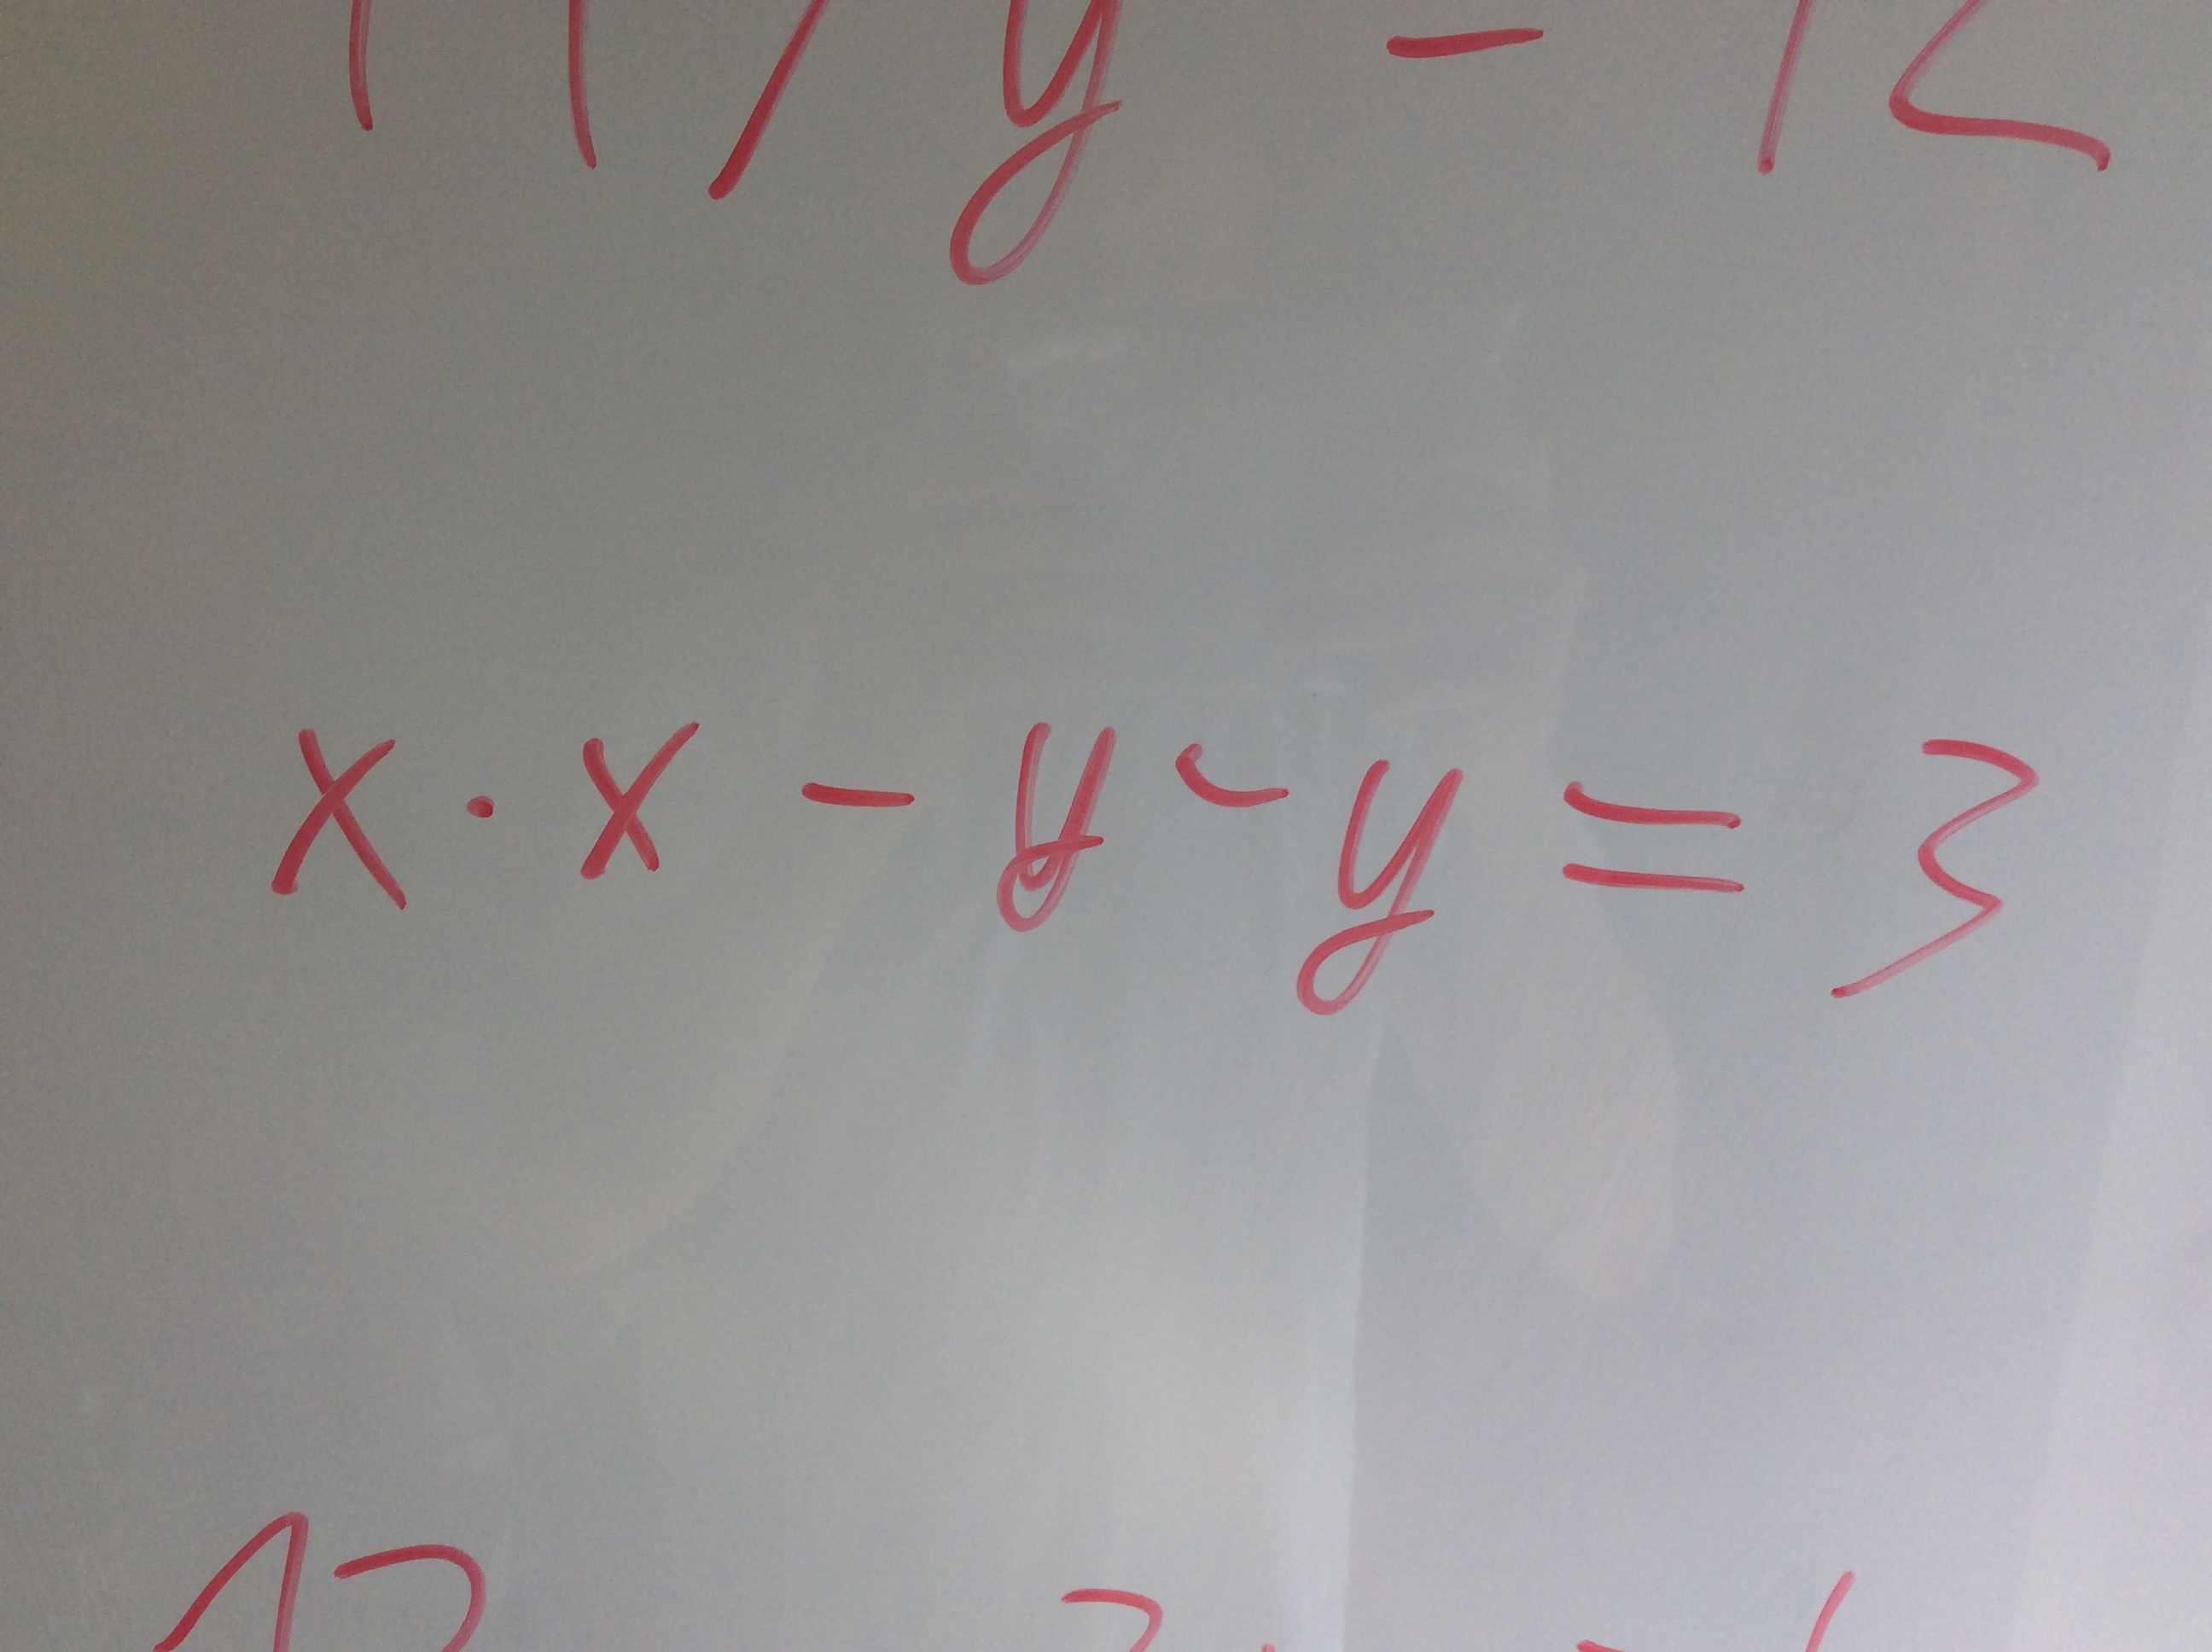 11/y - 12
x · x - y - y = 3